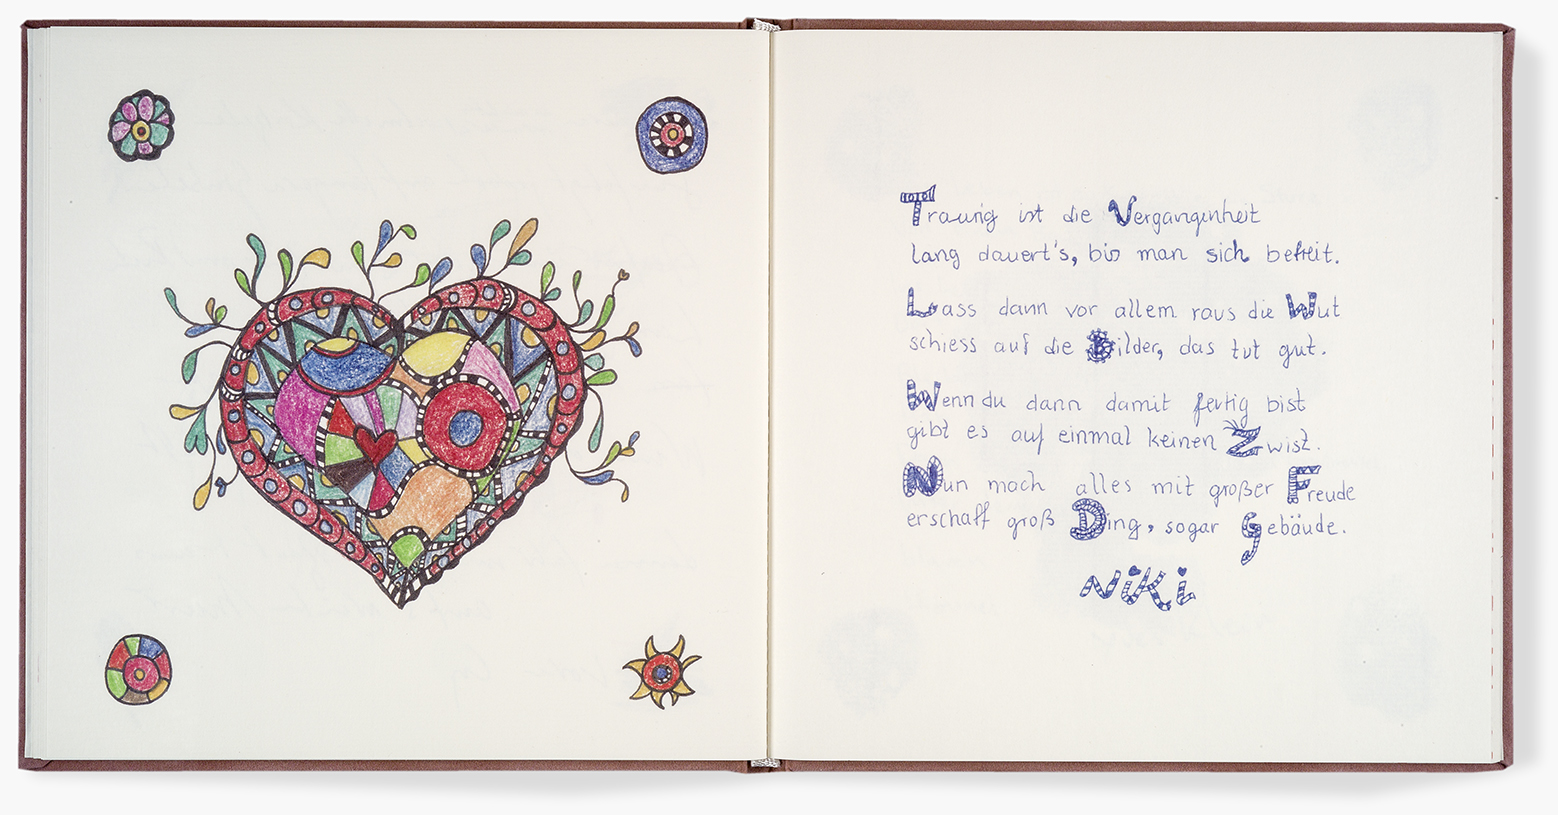 Traurig ist die Vergangenheit
lang dauert's, bis man sich befreit.
Lass dann vor allem raus die Wut
schiess auf die Bilder, das tut gut.
Wenn du dann damit fertig bist
gibt es auf einmal keinen Zwist.
Nun mach alles mit großer Freude
erschaff groß Ding, sogar Gebäude.
NiKi